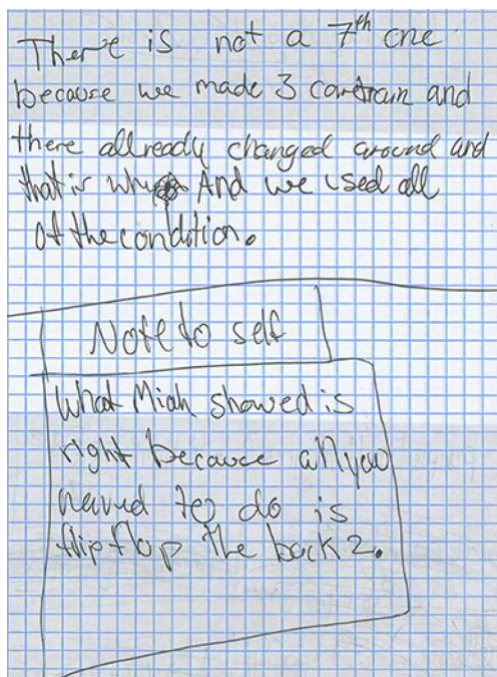 There is not a 7th one
because we made 3 car train and
there allready changed around and
that is why And we used all
of the condition.
Note to self
What Miah showed is
right because all you
to do is
flip flop the back 2.